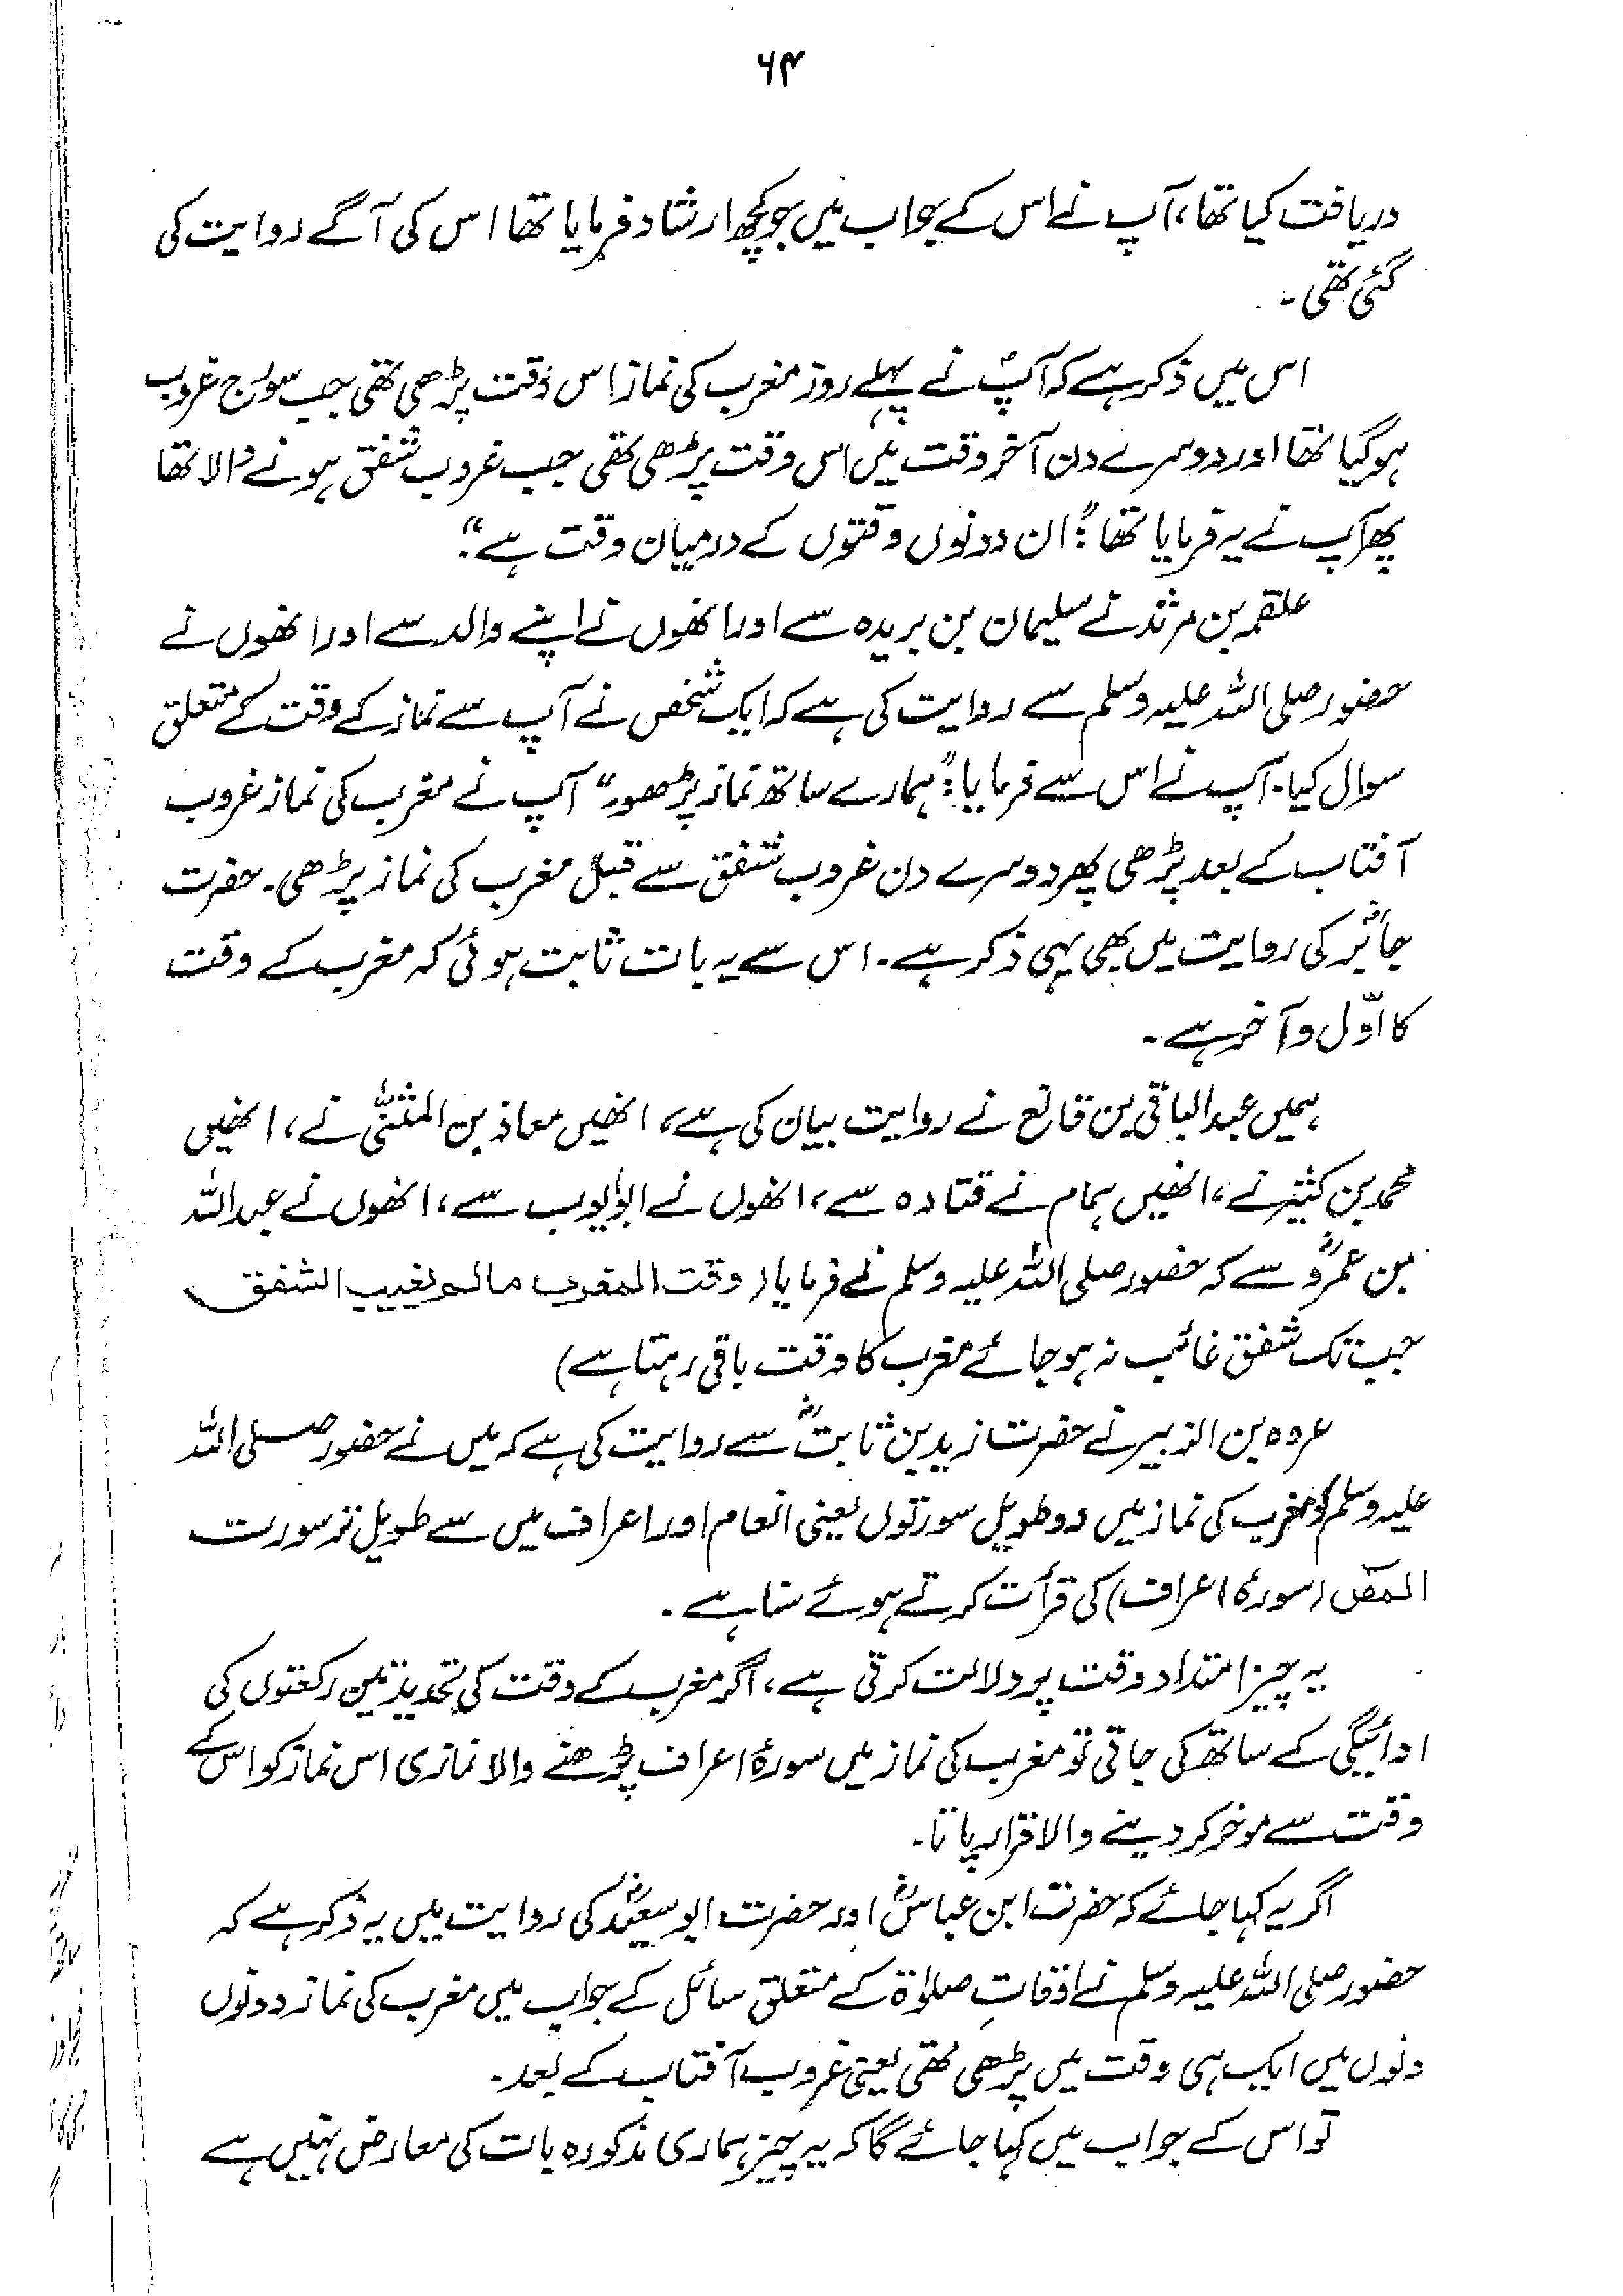 ۶۴
دریافت کیا تھا، آپ نے اس کے جواب میں جو کچھ ارشاد فرمایا تھا اس کی آگے روایت کی
گئی تھی۔
اس میں ذکر ہے کہ آپؐ نے پہلے روز مغرب کی نماز اس وقت پڑھی تھی جب سورج غروب
ہو گیا تھا اور دوسرے دن آخر وقت میں اس وقت پڑھی تھی جب غروب شفق ہونے والا تھا
پھر آپ نے یہ فرمایا تھا: "ان دونوں وقتوں کے درمیان وقت ہے"۔
علقمہ بن مرثد نے سلیمان بن بریدہ سے اور انھوں نے اپنے والد سے اور انھوں نے
حضور صلی اللہ علیہ وسلم سے روایت کی ہے کہ ایک شخص نے آپ سے نماز کے وقت کے متعلق
سوال کیا۔ آپ نے اس سے فرمایا: "ہمارے ساتھ نماز پڑھو" آپ نے مغرب کی نماز غروب
آفتاب کے بعد پڑھی پھر دوسرے دن غروب شفق سے قبل مغرب کی نماز پڑھی۔ حضرت
جابرؓ کی روایت میں بھی یہی ذکر ہے۔ اس سے یہ بات ثابت ہوئی کہ مغرب کے وقت
کا اوّل و آخر ہے۔
ہمیں عبدالباقی بن قانع نے روایت بیان کی ہے، انھیں معاذ بن المثنیٰ نے، انھیں
محمد بن کثیر نے، انھیں ہمام نے قتادہ سے، انھوں نے ابوایوب سے، انھوں نے عبداللہ
بن عمروؓ سے کہ حضور صلی اللہ علیہ وسلم نے فرمایا (وقت المغرب مالم یغیب الشفق۔
جب تک شفق غائب نہ ہو جائے مغرب کا وقت باقی رہتا ہے)
عروہ بن الزبیر نے حضرت زید بن ثابتؓ سے روایت کی ہے کہ میں نے حضور صلی اللہ
علیہ وسلم کو مغرب کی نماز میں دو طویل سورتوں یعنی انعام اور اعراف میں سے طویل تر سورت
المٓصٓ (سورۂ اعراف) کی قرأت کرتے ہوئے سنا ہے۔
یہ چیز امتداد وقت پر دلالت کرتی ہے، اگر مغرب کے وقت کی تحدید تین رکعتوں کی
ادائیگی کے ساتھ کی جاتی تو مغرب کی نماز میں سورۂ اعراف پڑھنے والا نمازی اس نماز کو اس کے
وقت سے موخر کر دینے والا قرار پاتا۔
اگر یہ کہا جائے کہ حضرت ابن عباسؓ اور حضرت ابو سعیدؓ کی روایت میں یہ ذکر ہے کہ
حضور صلی اللہ علیہ وسلم نے اوقاتِ صلوٰۃ کے متعلق سائل کے جواب میں مغرب کی نماز دونوں
دنوں میں ایک ہی وقت میں پڑھی تھی یعنی غروب آفتاب کے بعد۔
تو اس کے جواب میں کہا جائے گا کہ یہ چیز ہماری مذکورہ بات کی معارض نہیں ہے